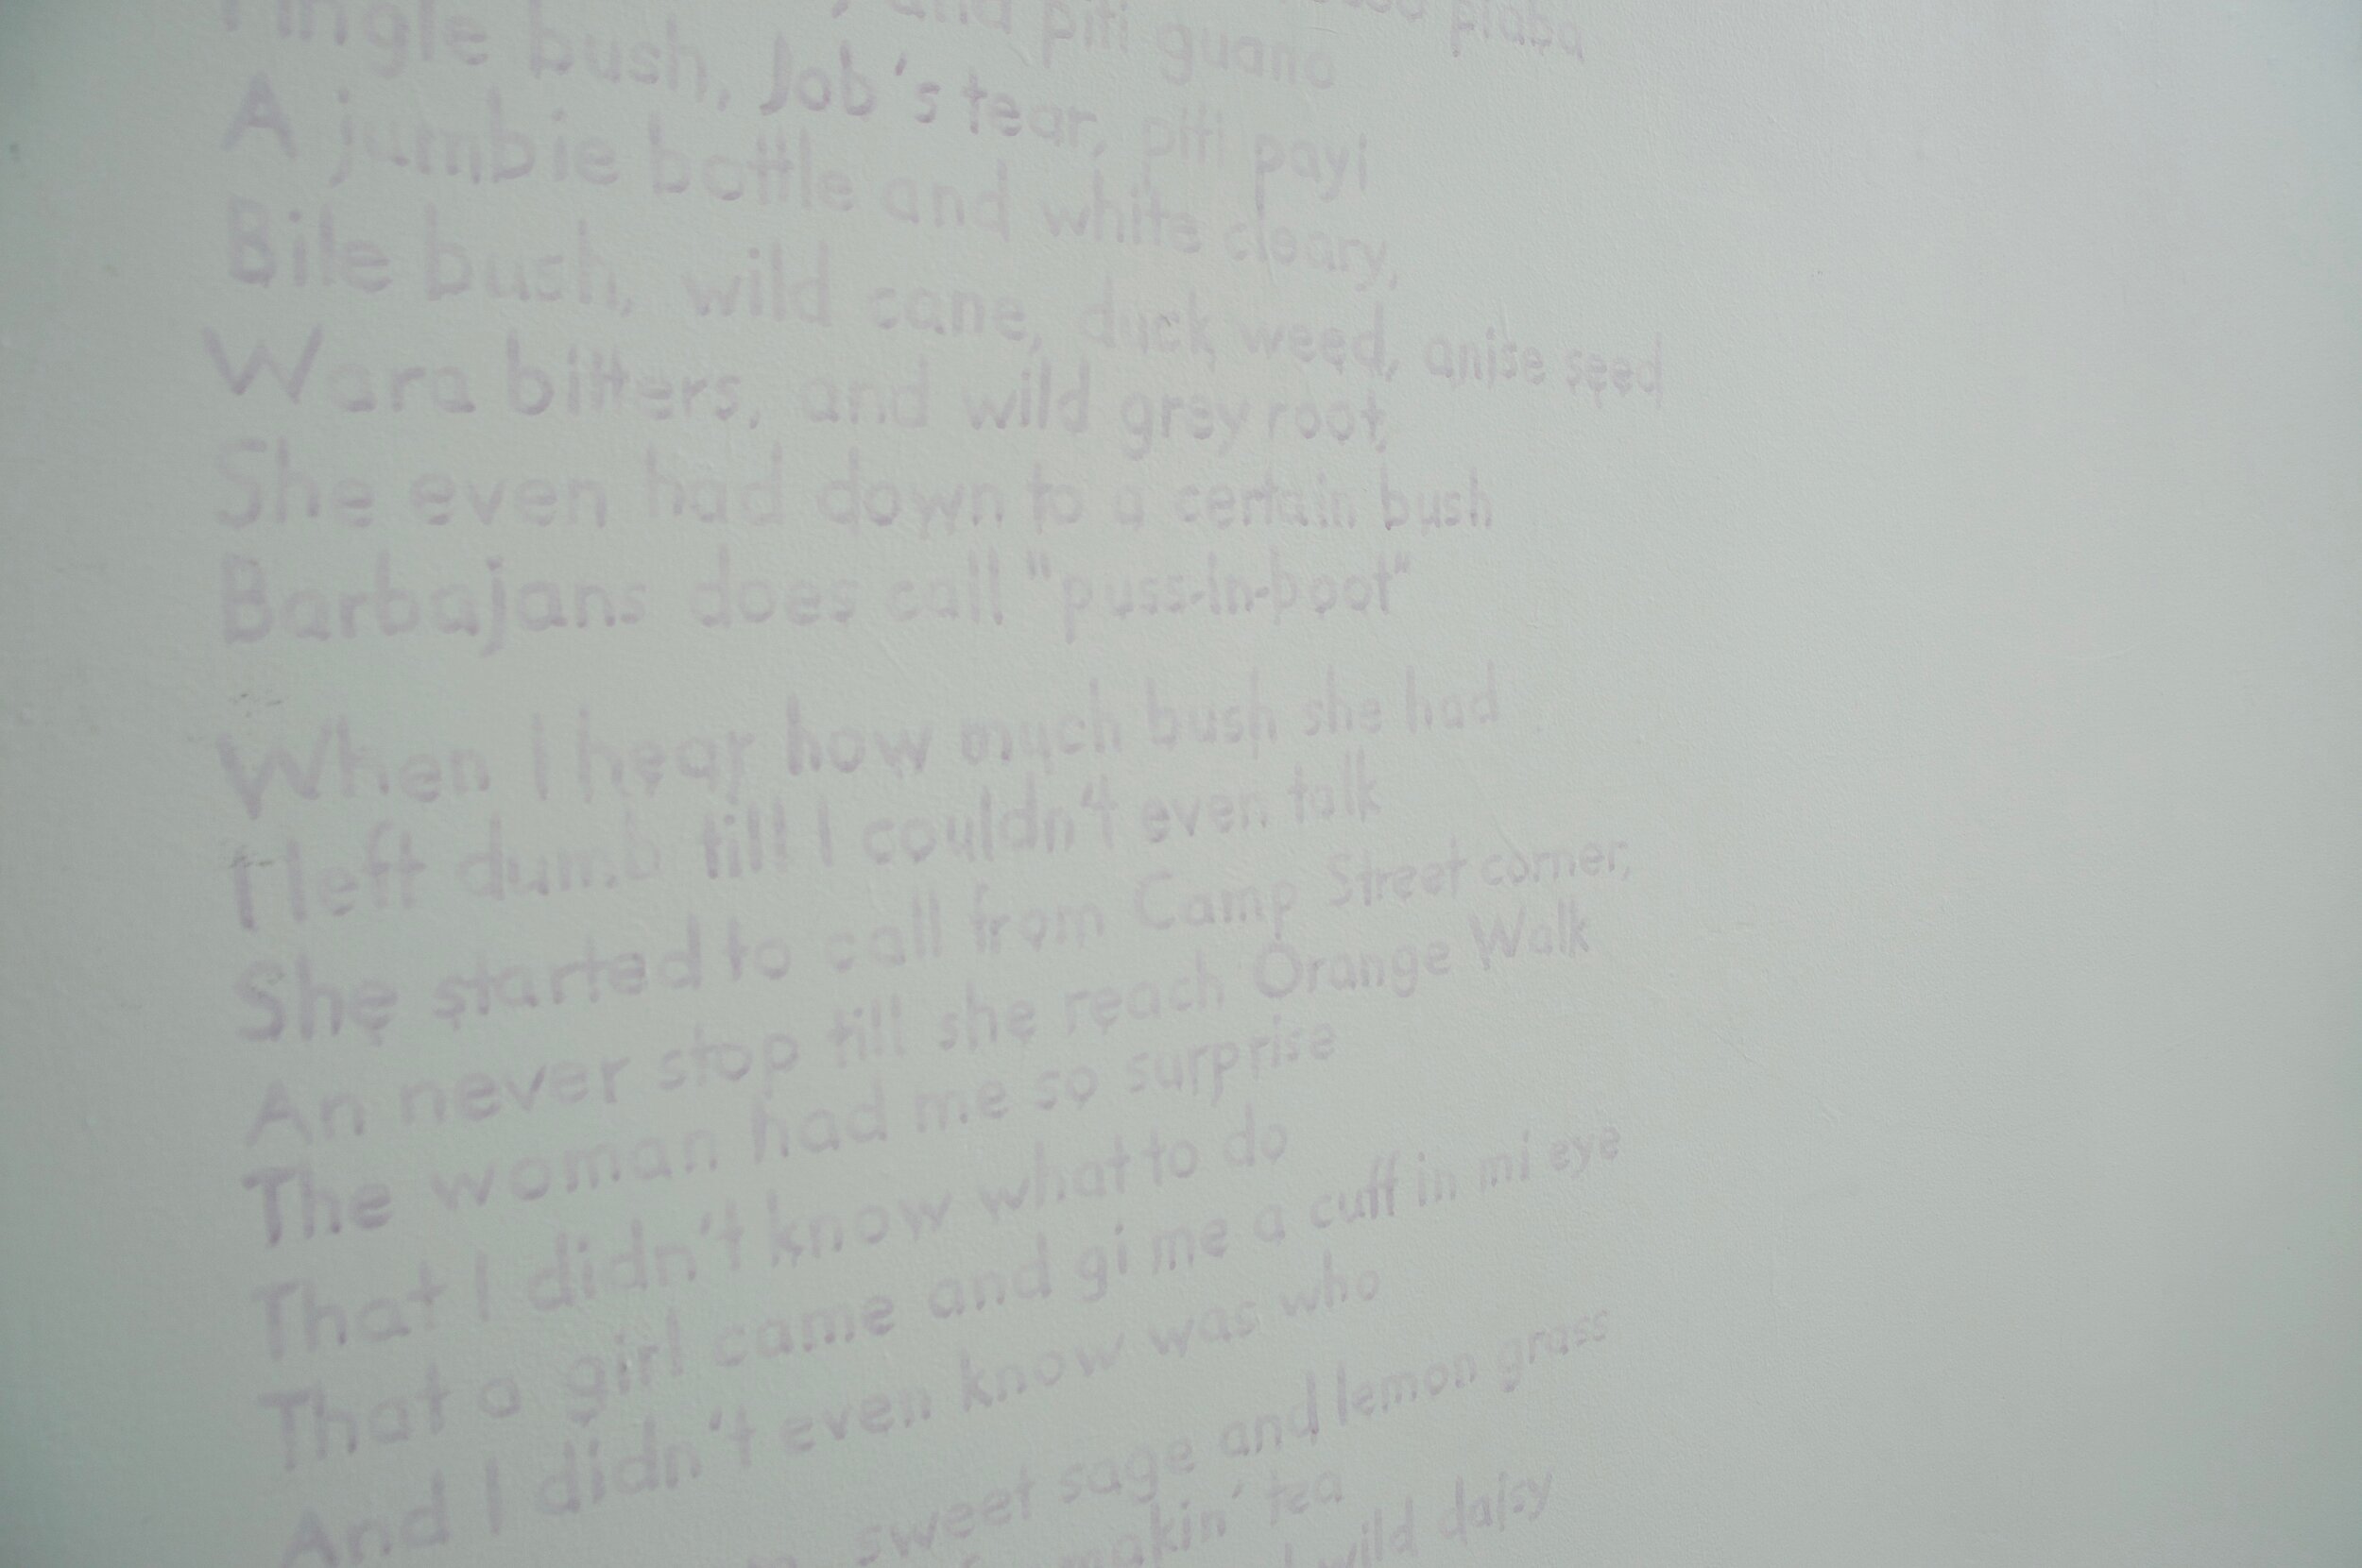 piaba
and piti guano
Tingle bush, Job's tear, piti payi
A jumbie bottle and white cleary,
Bile bush, wild cane, duck weed, anise seed
Wara bitters, and wild grey root,
She even had down to a certain bush
Barbajans does call "puss-in-boot"
When I hear how much bush she had
I left dumb till I couldn't even talk
She started to call from Camp Street corner,
An never stop till she reach Orange Walk
The woman had me so surprise
That I didn't know what to do
That a girl came and gi me a cuff in mi eye
And I didn't even know was who
sweet sage and lemon grass
makin' tea
wild daisy